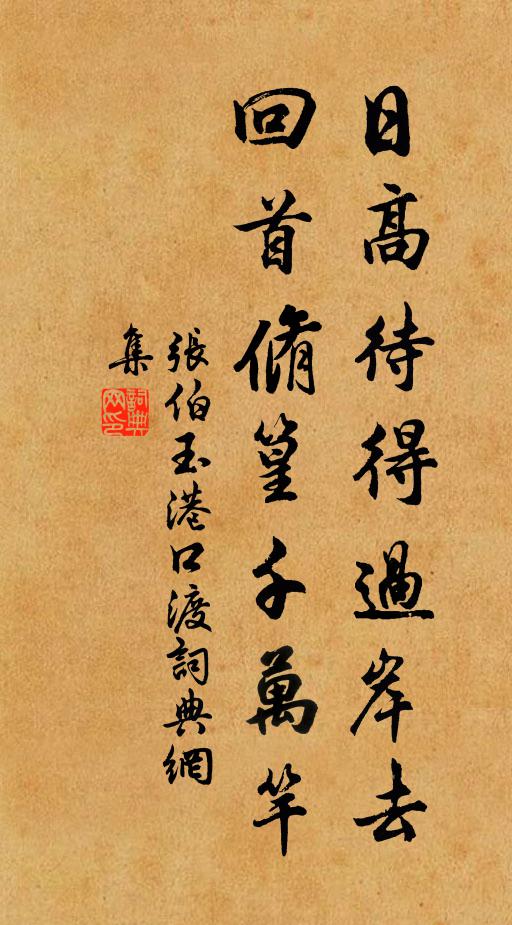 日高待得過岸去
回首脩篁千萬竿
張伯玉港口渡詞典網
集
詞典
网印